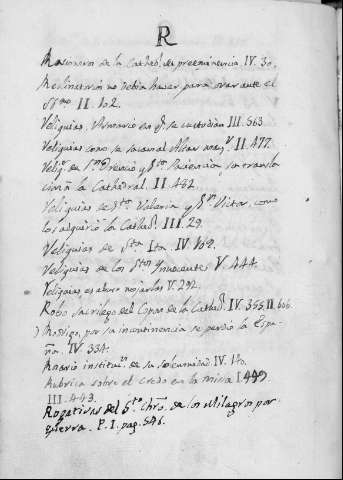 R
Racioneros de la Cathedl. de preeminencia IV. 30.
Reclinatorio no debia haver para orar ante el
Ssmo II. 102.
Reliquias. Armario en q. se custodian III. 563
Reliquias como se sacan al Altar mayr. II. 477
Reliqs. de Sn. Orencio y Sta. Paciencia, su transla
cion a la Cathedral. II. 462
Reliquias de Sto. Valerio y Sn. Victor, como
los adquirió la Cathedl. III. 29.
Reliquias de Sta IV. 102.
Reliquias de los Stos Ynnocentes V. 444.
Reliquias es abuso V. 292.
Robo sacrilego del Copon de la Cathedl. IV. 355. II. 666.
Rodrigo, por su incontinencia se perdio la Espa-
ña. IV. 334.
Rosario institun. de su solemnidad IV. 110.
Rubrica sobre el credo en la misa I. 449
III. 443.
Rogativas del Sto. Chro. de los Milagros por
guerra. P. I. pag. 546.